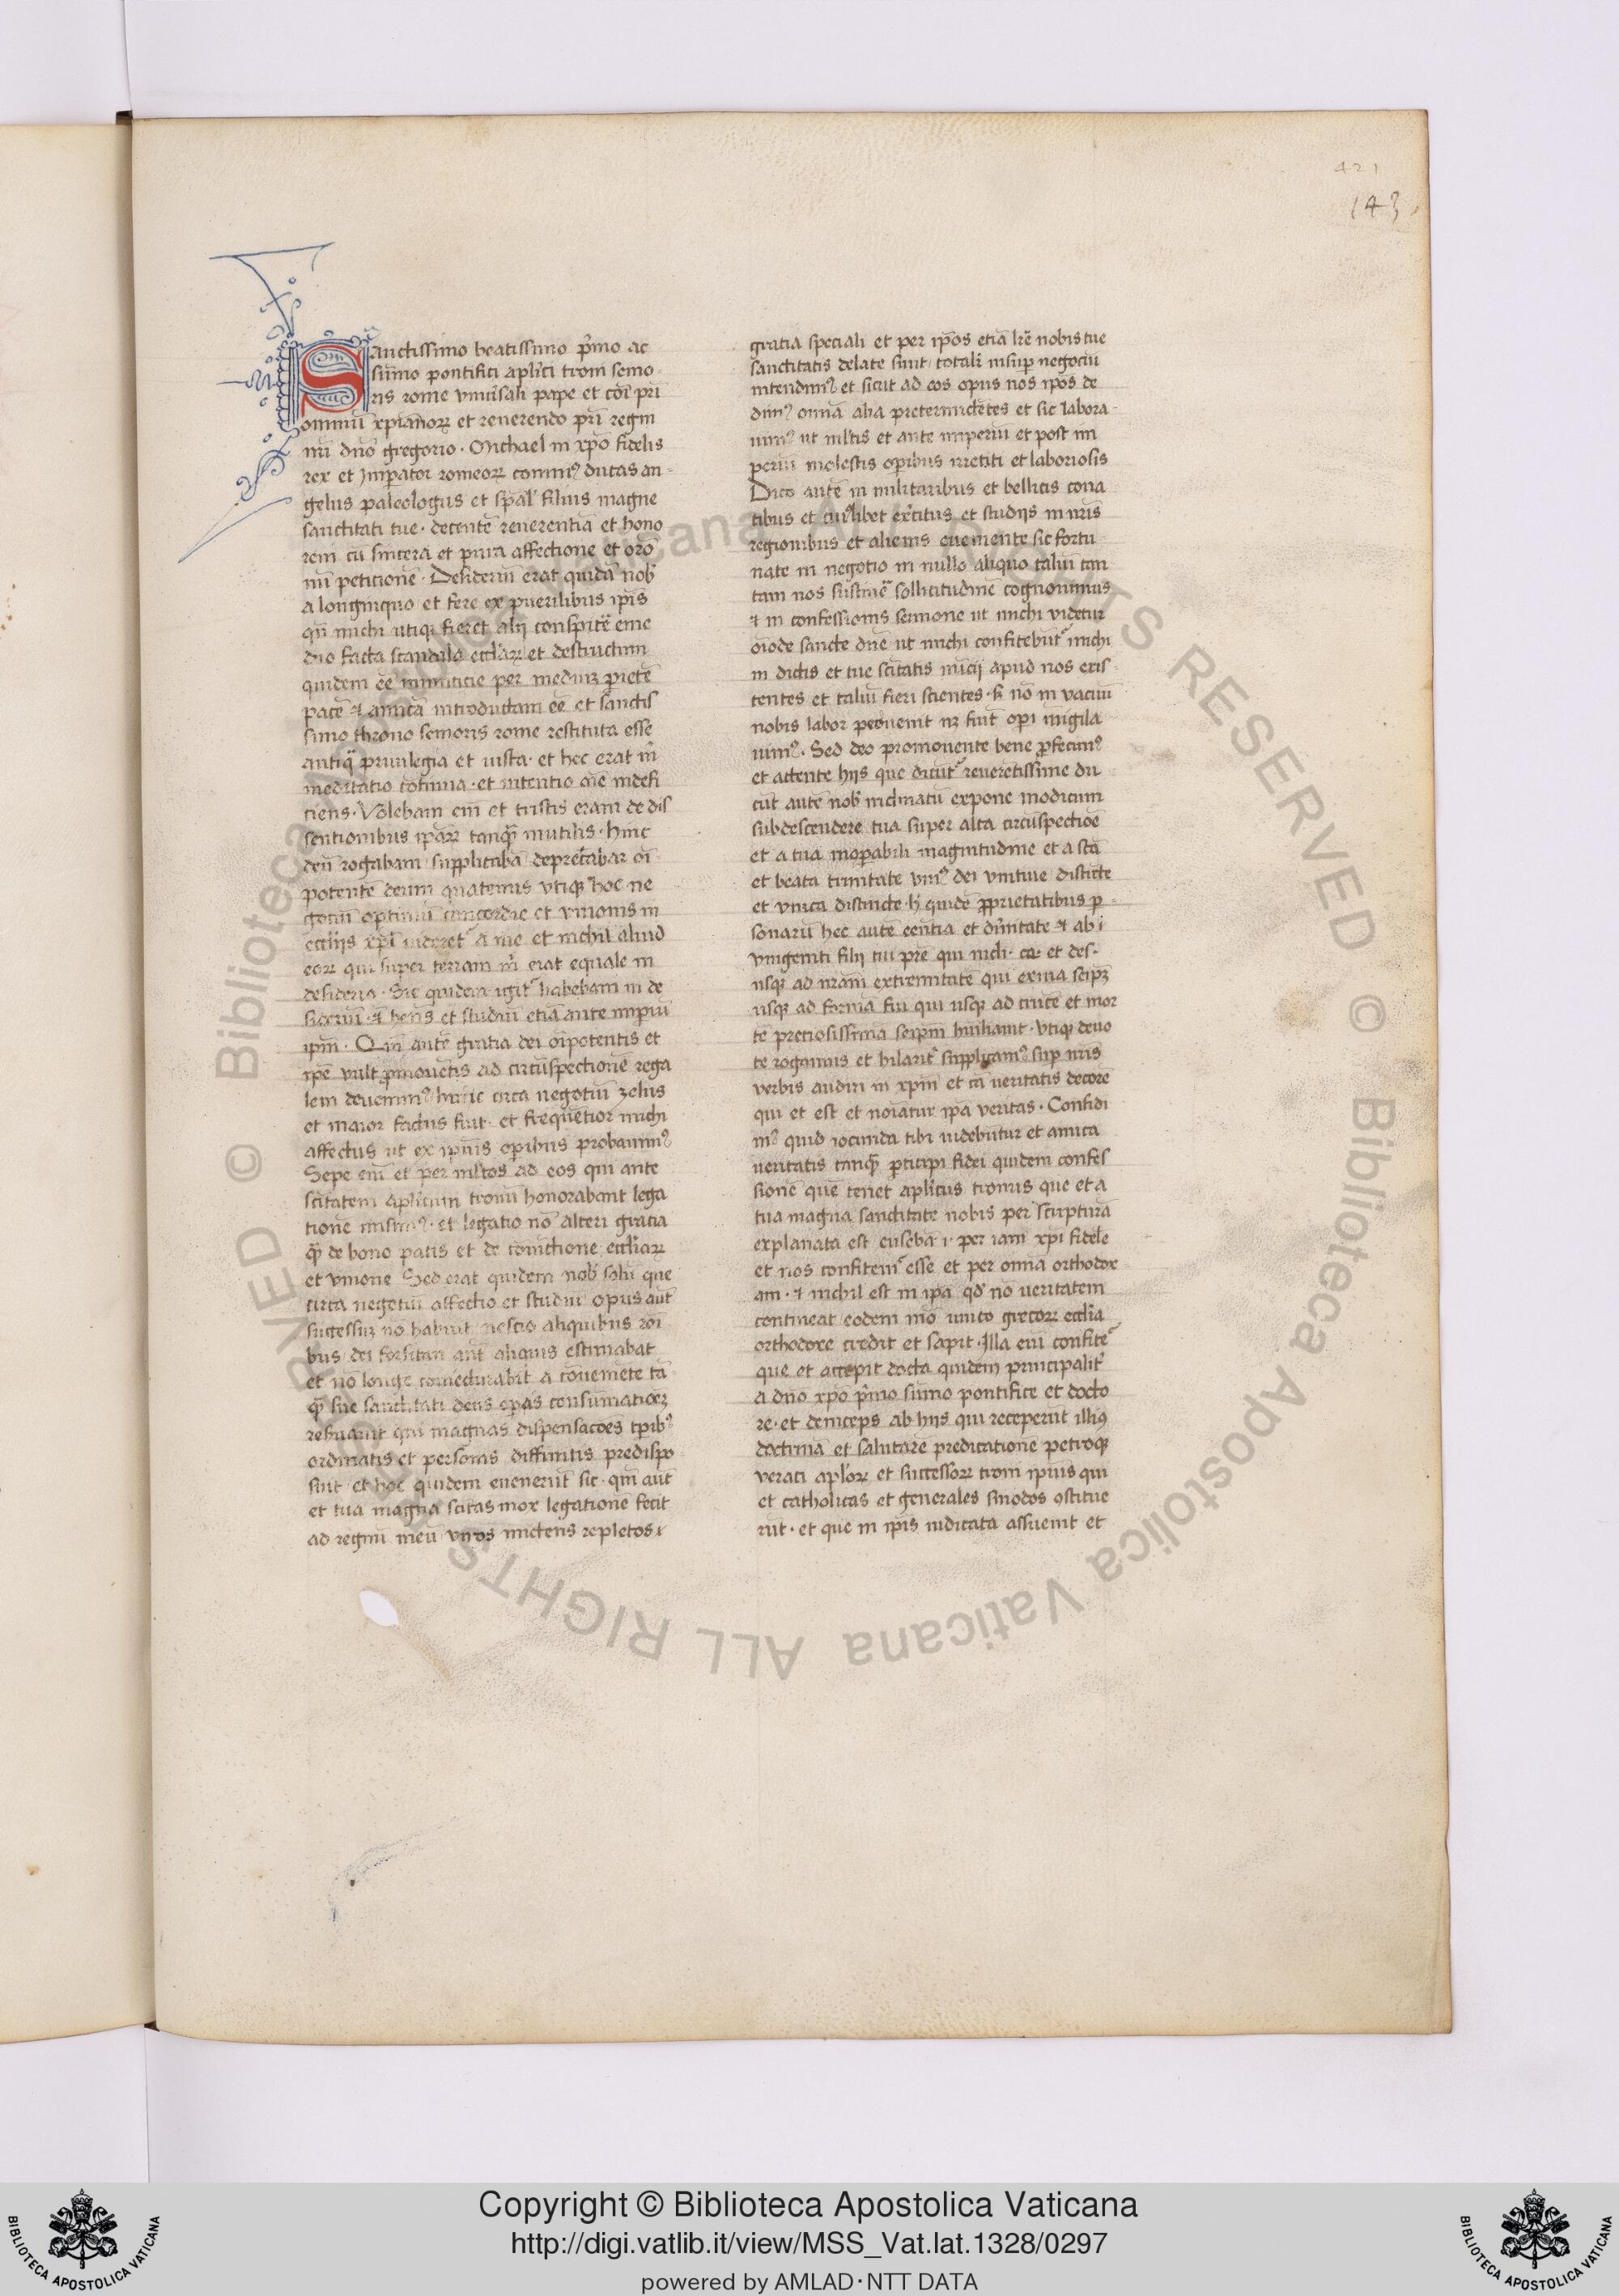 421
143
Sanctissimo beatissimo p̃mo ac
sũmo pontifici aplici troni senio
ris rome vniũsali pape et cõi pri
omniũ xpianorꝝ et reuerendo pri regni
nr̃i dño gregorio · Michael in xpõ fidelis
rex et Imperator romeorꝝ ducas an
gelus paleologus et spãl filius magne
sanctitati tue · decentẽ reuerentiã et hono
rem cũ sincera et pura affectione et orõ
nũ peticionẽ · Desideriũ erat quidã nob̃
a longinquo et fere ex puerilibus ipĩs
qñ michi utiqꝫ fieret
dño facta scandala eccl̃iarꝝ et destructum
quidem eẽ inimiticie per
pacẽ et amicã introductam eẽ et sanctis
simo throno senioris rome restituta esse
antiqͣ priuilegia et iusta · et hec erat m̃
meditatio cõtinua · et intentio mẽ indefi
ciens · Volebam em̃ et tristis eram de dis
sentionibus ipãrꝝ tanqͣ̃ inutilis · hinc
deũ rogabam supplicabã deprecabar oĩ
potentẽ deum quatenus vtiqꝫ hoc ne
gociũ optimũ concordie et vnionis in
eccl̃ijs xpĩ uideret᷑ a me et nichil aliud
eorꝝ qui super terram m̃ erat equale in
desiderio · Sic quidem igit᷑ habebam in de
sideriũ · et et studiũ etiã ante imperiũ
ipm̃ · Qm̃ autẽ gratia dei oĩpotentis et
ipẽ ad circũspectionẽ rega
lem deuenimꝰ circa negotiũ zelus
et maior factus fuit · et frequẽtior michi
affectus ut ex ipsius operibus probauimꝰ
Sepe em̃ et per mltos ad eos qui ante
sc̃itatem aplicum tronũ honorabant lega
tionẽ misimꝰ · et legatio nõ alteri gratia
qͣ̃ de bono pacis et de cõiunctione eccl̃iarꝝ
et vnione Sed erat quidem nob̃ solũ que
circa negotiũ affectio et studiũ opus aut̃
successũ nõ habuit nescio aliquibus rõi
bus dei forsitan aut̃ aliquis estimabat
et nõ longe a cõuenientẽ tã
qͣ̃ sue sanctitati deus operas
qui magnas dispensacões tpibꝰ
ordinatis et personis diffinitis predispo
suit et hoc quidem euenerũt sic · qm̃ aut̃
et tua magna sc̃itas mox legationẽ fecit
ad regnũ meũ viros mictens repletos ĩ
gratia speciali et per ipõs etiã lr̃e nobis tue
sanctitatis delate sunt totalĩ insup negociũ
intendimꝰ et sicut ad eos opus nos ipõs de
dimꝰ omnã alia pretermictẽtes et sic labora
uimꝰ ut mltis et ante imperiũ et post im
periũ molestis operibus irretiti et laboriosis
Dico autẽ in militaribus et bellicis cona
tibus et cuiꝰlibet exc̃itus et studijs in nr̃is
regionibus et alienis euenientẽ sic fortu
nate in negotio in nullo aliquo taliũ tan
tam nos sustinẽ sollicitudinẽ cognouimus
et in confessionis sermone ut michi videtur
oĩode sancte dñe ut michi confitebũt᷑ michi
in dictis et tue sc̃itatis nũcij apud nos exis
tentes et taliũ fieri scientes · nõ in vacuũ
nobis labor peruenit nꝫ fuit
uimꝰ · Sed deo promouente bene pfecimꝰ
et actente hijs que dicũt᷑ reuerẽtissime du
cũt autẽ nob̃ inclinatũ expone modicum
subdescendere tua super alta circũspectiõe
et a tua inoperabili magnitudine et a sc̃a
et beata trinitate vniꝰ dei vnitiue disticte
et vnica distincte · quidẽ ꝓprietatibus p
sonarũ hec autẽ eẽntia et diũnitate et ab ĩ
vnigeniti filij tui prẽ qui mch̃ · ca · et des ·
usqꝫ ad nr̃am extremitatẽ qui exina seipꝫ
usqꝫ ad formã fui qui usqꝫ ad crucẽ et mor
tẽ preciosissimã seipm̃ hũiliauit · vtiqꝫ deuo
te rogamus et hilarit᷑ supplicamꝰ sup nr̃is
verbis audiri in xpm̃ et cũ ueritatis decorẽ
qui et est et noĩatur ipa veritas · Confidi
mꝰ quid iocunda tibi uidebũtur et amica
ueritatis tanqͣ̃ pticipi fidei quidem confes
sionẽ quẽ tenet aplicus tronus que et a
tua magna sanctitate nobis per scripturã
explanata est eusebã · ĩ · per iam̃ xpĩ fidele
et nos confitem᷑ esse et per omnã orthodox
am · et nichil est in ipa qd̃ nõ ueritatem
contineat eodem mõ unito grecorꝝ eccl̃ia
orthodoxe credit et sapit · Illa em̃ confite᷑
que et accepit docta quidem principalit᷑
a dño xpõ p̃mo sũmo pontifice et docto
re · et deniceps ab hijs qui receperũt illiꝰ
doctrinã et salutarẽ predicationẽ petroqꝫ
veraci aplorꝝ et successorꝝ troni ipsius qui
et catholicas et generales sinodos ꝯstitue
rũt · et que in ipĩs iudicata assuenit et
Copyright © Biblioteca Apostolica Vaticana
http://digi.vatlib.it/view/MSS_Vat.lat.1328/0297
powered by AMLAD·NTT DATA